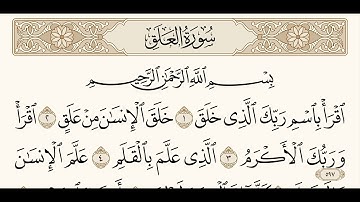 سُورَةُ الْعَلَقِ
بِسْمِ اللَّهِ الرَّحْمَٰنِ الرَّحِيمِ
ٱقْرَأْ بِٱسْمِ رَبِّكَ ٱلَّذِى خَلَقَ ١ خَلَقَ ٱلْإِنسَٰنَ مِنْ عَلَقٍ ٢ ٱقْرَأْ
وَرَبُّكَ ٱلْأَكْرَمُ ٣ ٱلَّذِى عَلَّمَ بِٱلْقَلَمِ ٤ عَلَّمَ ٱلْإِنسَٰنَ
٥٩٧